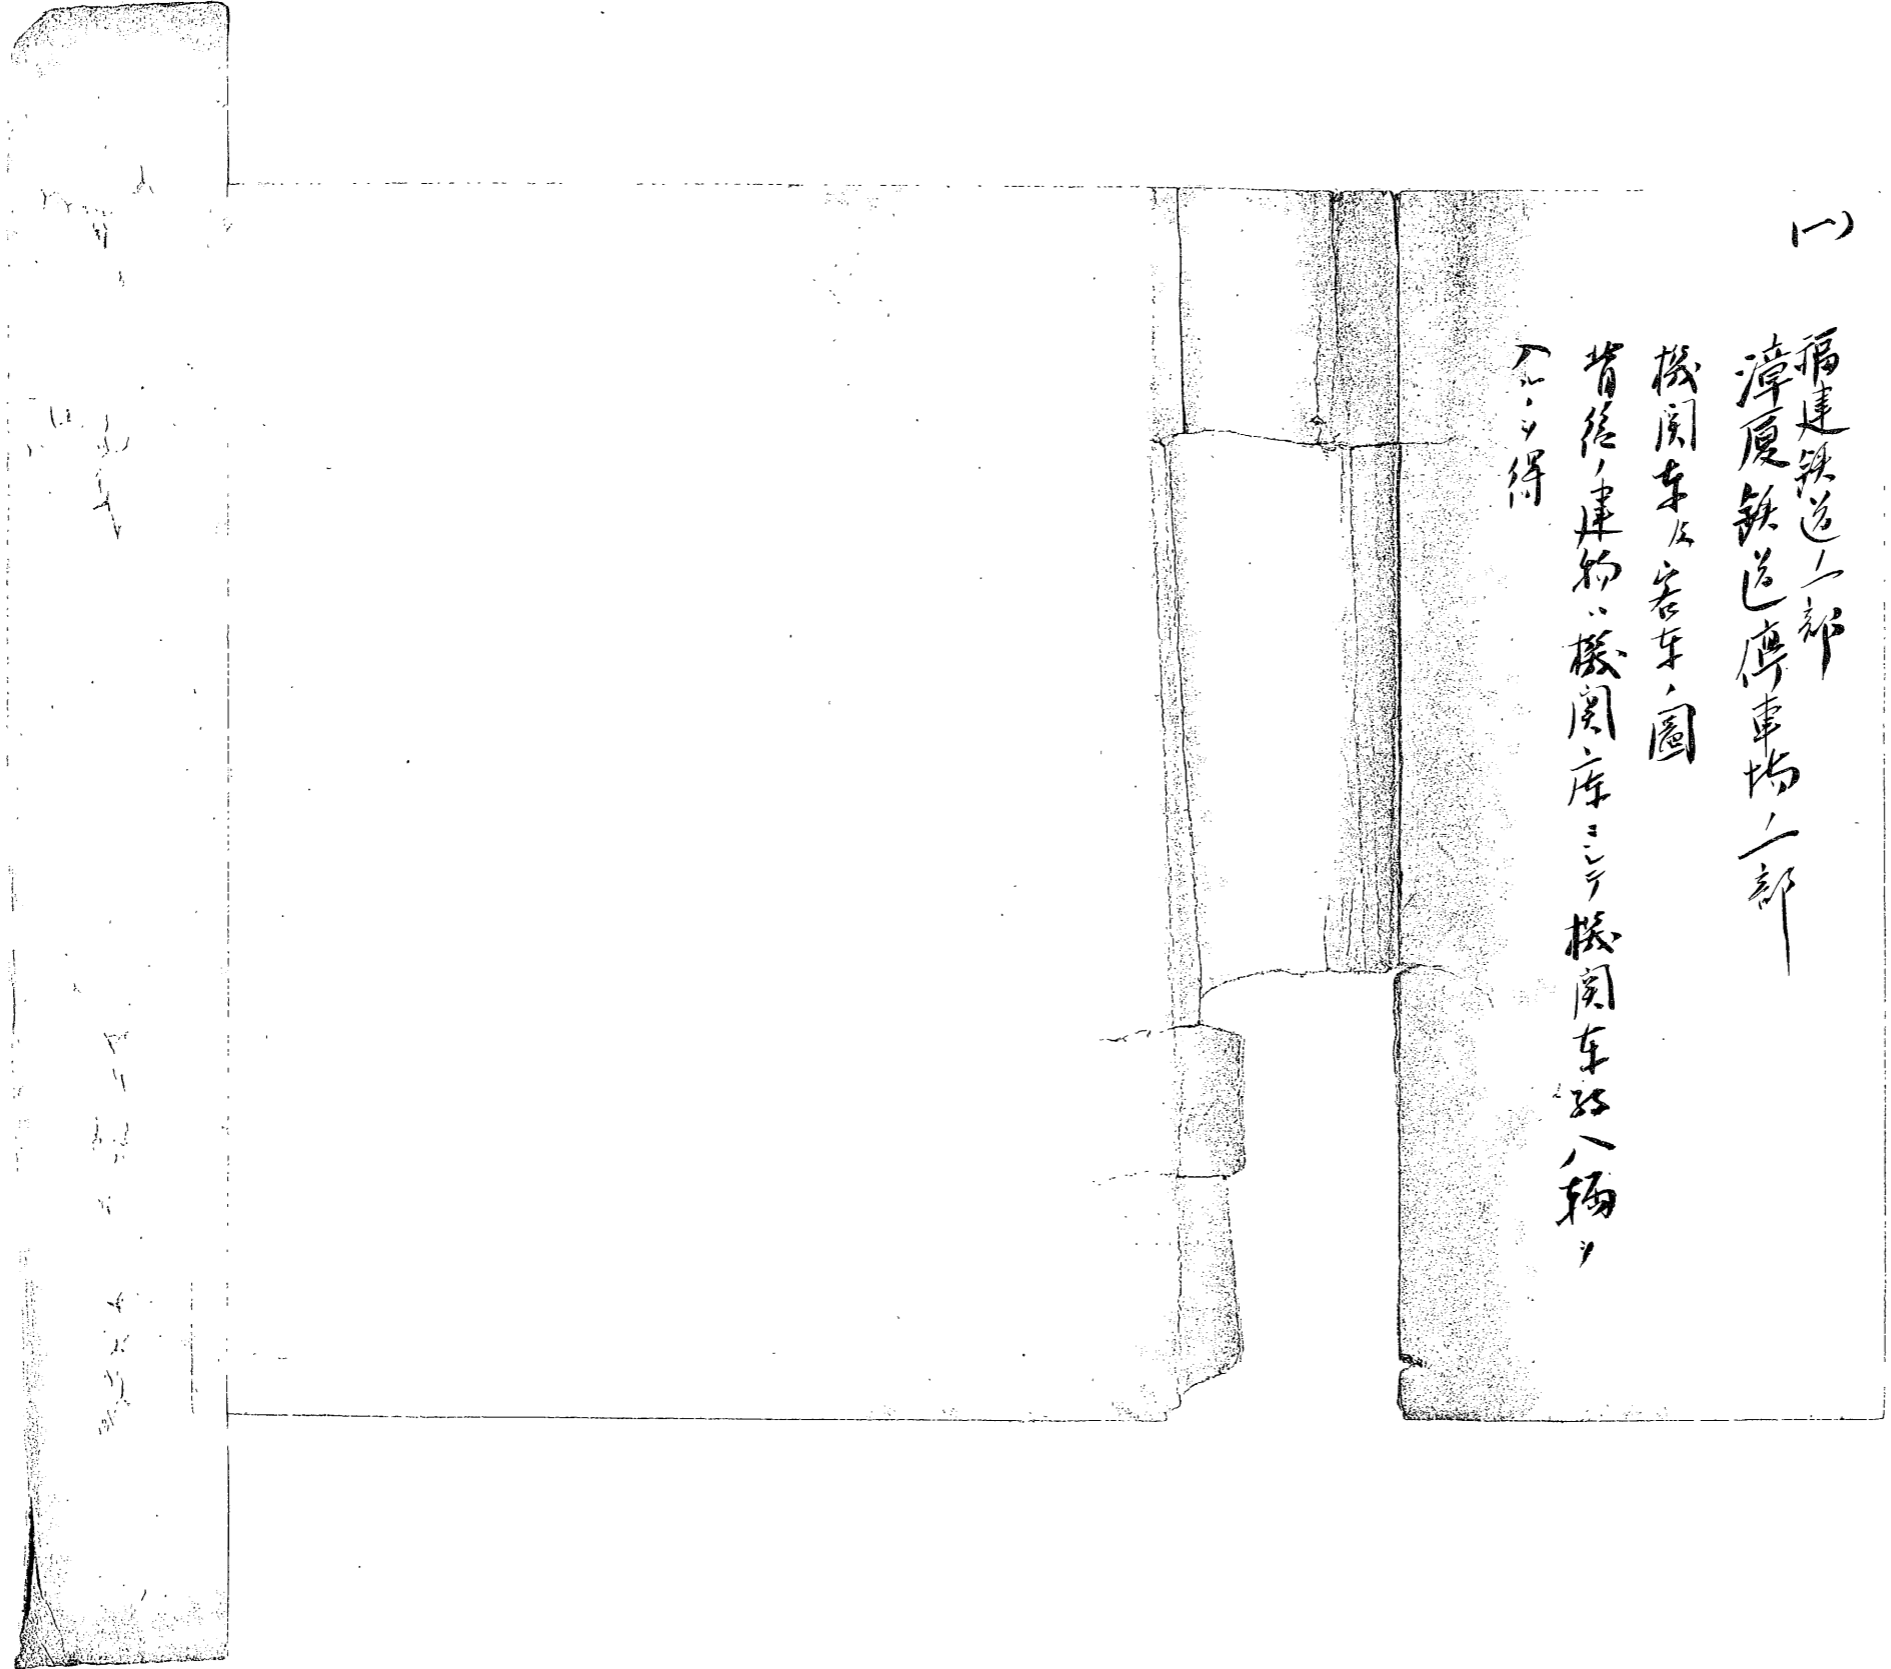 (一)
福建鉄道ノ一部
漳厦鉄道停車場ノ一部
機関车及客车ノ圖
背後ノ建物ハ機関庫ニシテ機関车 八輌ヲ
入ルヽヲ得